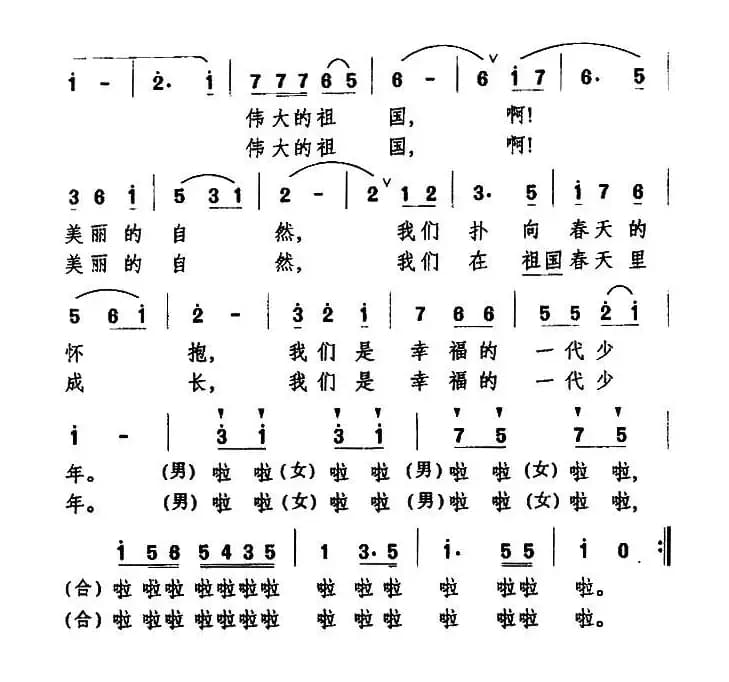 i - | 2. i | 7 7 7 6 5 | 6 - | 6 i 7 | 6. 5 |
伟大的祖 国, 啊!
伟大的祖 国, 啊!
3 6 i | 5 3 1 | 2 - | 2 1 2 | 3. 5 | i 7 6 |
美丽的 自 然, 我们 扑 向 春天的
美丽的 自 然, 我们 在 祖国春天里
5 6 i | 2 - | 3 2 i | 7 6 6 | 5 5 2 i |
怀 抱, 我们是 幸福的 一代少
成 长, 我们是 幸福的 一代少
i - | 3 i | 3 i | 7 5 | 7 5 |
年。 (男)啦 啦(女)啦 啦(男)啦 啦(女)啦 啦,
年。 (男)啦 啦(女)啦 啦(男)啦 啦(女)啦 啦,
i 5 6 5 4 3 5 | 1 3. 5 | i. 5 5 | i 0 :||
(合)啦 啦啦 啦啦啦啦 啦 啦啦 啦 啦啦 啦。
(合)啦 啦啦 啦啦啦啦 啦 啦啦 啦 啦啦 啦。